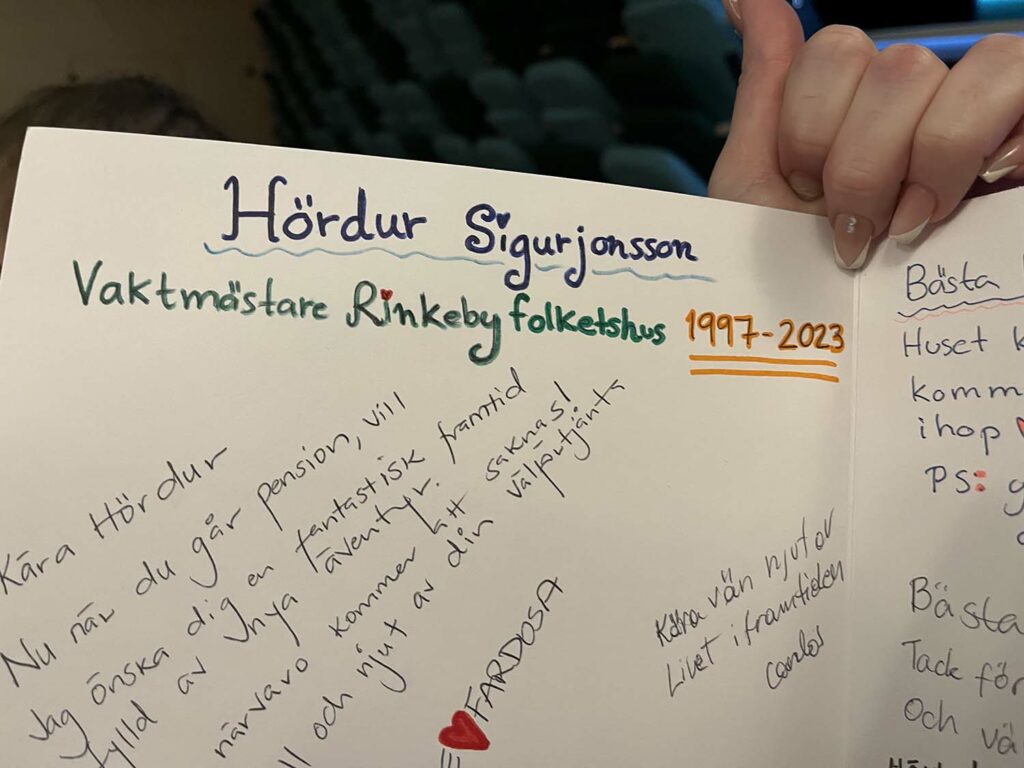 Hördur Sigurjonsson
Vaktmästare Rinkeby folketshus 1997-2023
Kära Hördur
Nu när du går pension, vill
Jag önska dig en fantastisk framtid
fylld av nya äventyr.
närvaro kommer att saknas!
och njut av din välförtjänta
FARDOSA
Kära vän njutov
Livet i framtiden
Carlos
Bästa
Huset k
komm
ihop
PS:
Bästa
Tack för
Och vä